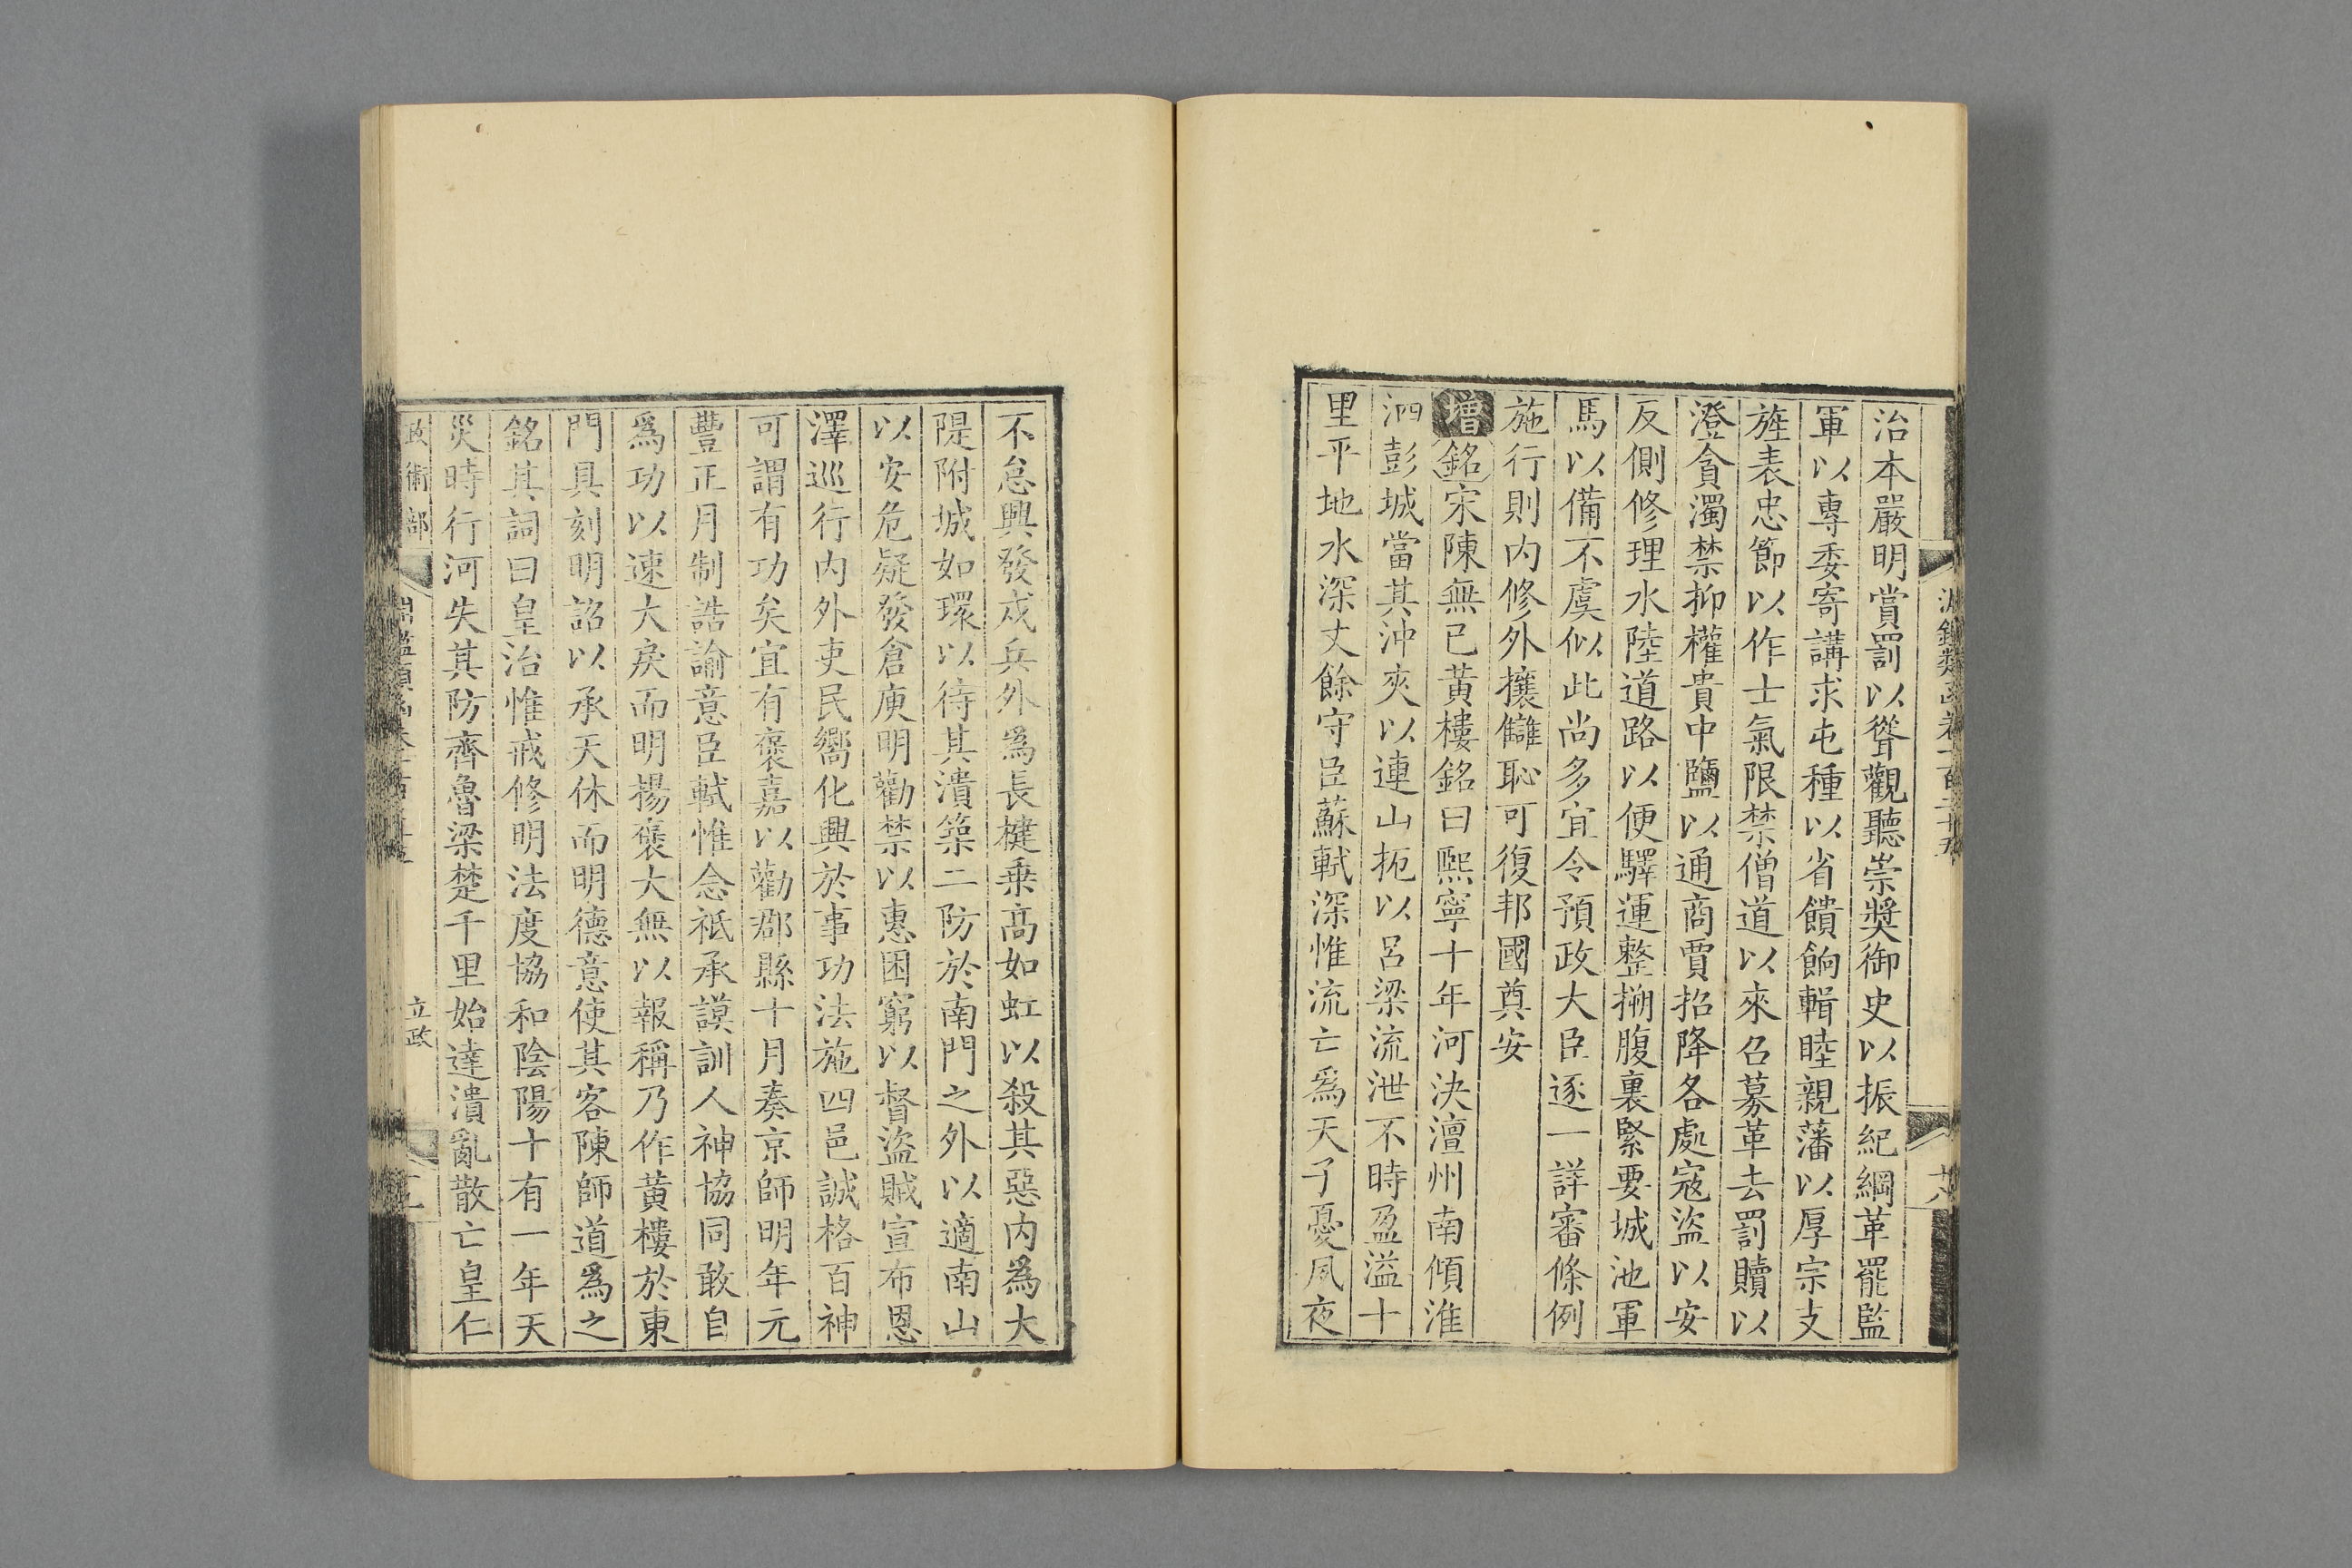 治本嚴明賞罰以聳觀聽崇奬御史以振紀綱革罷監
軍以專委寄講求屯種以省饋餉輯睦親藩以厚宗支
旌表忠節以作士氣限禁僧道以來召募革去罰贖以
澄貪濁禁抑權貴中鹽以通商賈招降各處寇盜以安
反側修理水陸道路以便驛運整搠腹裏緊要城池軍
馬以備不虞似此尚多宜令預政大臣逐一詳審條例
施行則内修外攘讎恥可復邦國奠安
增銘宋陳無已黃樓銘曰熙寧十年河決澶州南傾淮
泗彭城當其沖夾以連山扼以呂梁流泄不時盈溢十
里平地水深丈餘守臣蘇軾深惟流亡爲天子憂夙夜
不怠興發戍兵外爲長楗乗高如虹以殺其惡内爲大
隄附城如環以待其潰築二防於南門之外以適南山
以安危疑發倉庾明勸禁以惠困窮以督盜賊宣布恩
澤巡行内外吏民嚮化興於事功法施四邑誠格百神
可謂有功矣宜有褒嘉以勸郡縣十月奏京師明年元
豐正月制誥諭意臣軾惟念祗承謨訓人神協同敢自
爲功以速大戾而明揚褒大無以報稱乃作黄樓於東
門具刻明詔以承天休而明德意使其客陳師道爲之
銘其詞曰皇治惟戒修明法度協和陰陽十有一年天
災時行河失其防齊魯梁楚千里始達潰亂散亡皇仁
政術部
立政